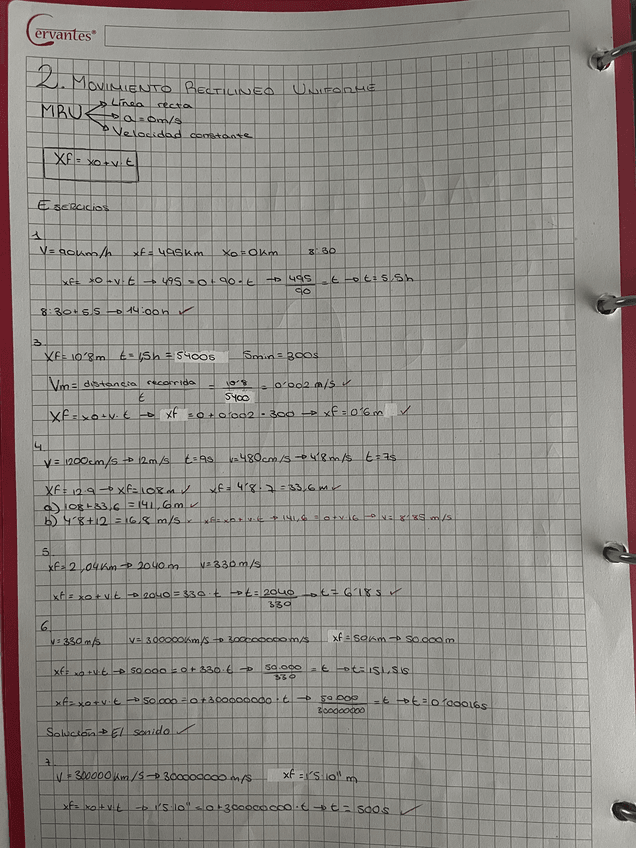 Cervantes®
2. MOVIMIENTO RECTILINEO UNIFORME
MRU → Línea recta
→ a = 0m/s
→ Velocidad constante
Xf = xo + v·t
EJERCICIOS
1.
V = 90km/h xf = 495km xo = 0km 8:30
xf = xo + v·t → 495 = 0 + 90·t → 495/90 = t → t = 5,5h
8:30 + 5,5 → 14:00h ✓
3.
Xf = 10'8m t = 1,5h = 5400s 5min = 300s
Vm = distancia recorrida / t = 10'8 / 5400 = 0'002 m/s ✓
Xf = xo + v·t → xf = 0 + 0'002 · 300 → xf = 0'6m ✓
4.
v = 1200cm/s → 12m/s t = 9s v = 480cm/s → 4'8m/s t = 7s
Xf = 12·9 → xf = 108m ✓ xf = 4'8 · 7 = 33,6m ✓
a) 108 + 33,6 = 141,6m ✓
b) 4'8 + 12 = 16,8 m/s ✓ xf = xo + v·t → 141,6 = 0 + v·16 → v = 8'85 m/s
5.
xf = 2,04km → 2040m v = 330m/s
xf = xo + v·t → 2040 = 330·t → t = 2040/330 → t = 6'18s ✓
6.
v = 330m/s v = 300000km/s → 300000000m/s xf = 50km → 50.000m
xf = xo + v·t → 50.000 = 0 + 330·t → 50.000/330 = t → t = 151,51s
xf = xo + v·t → 50.000 = 0 + 300000000·t → 50.000/300000000 = t → t = 0'00016s
Solución → El sonido ✓
7.
V = 300000km/s → 300000000m/s xf = 1'5·10¹¹ m
xf = xo + v·t → 1'5·10¹¹ = 0 + 300000000·t → t = 500s ✓